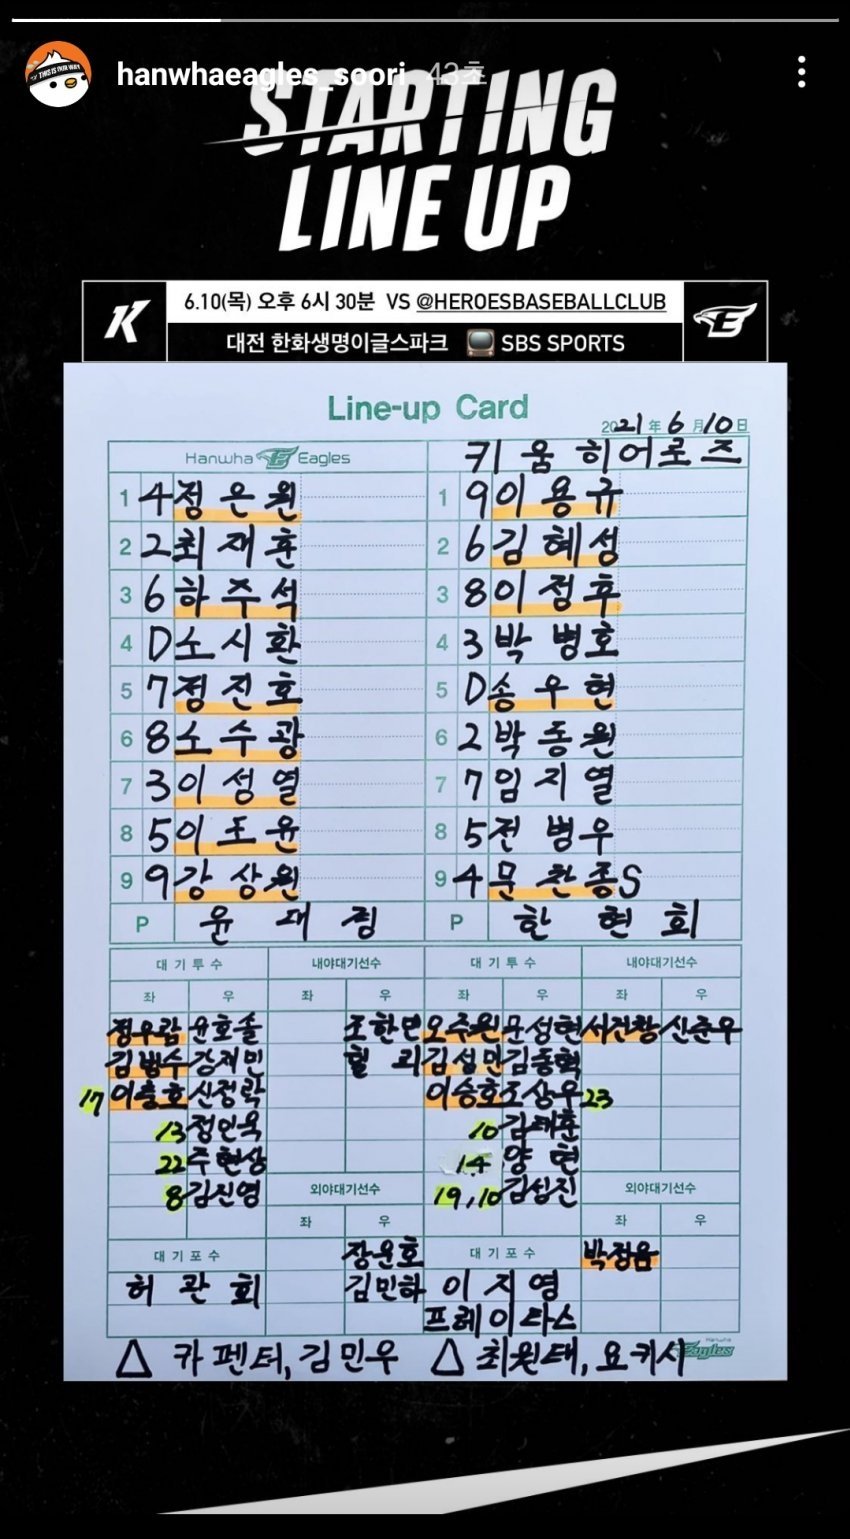 hanwhaeagles_soori 43초
STARTING
LINE UP
K 6.10(목) 오후 6시 30분 VS @HEROESBASEBALLCLUB
대전 한화생명이글스파크 SBS SPORTS
Line-up Card
2021 年 6 月 10 日
Hanwha Eagles 키움히어로즈
1 4 정은원 1 9 이용규
2 2 최재훈 2 6 김혜성
3 6 하주석 3 8 이정후
4 D 노시환 4 3 박병호
5 7 정진호 5 D 송우현
6 8 노수광 6 2 박동원
7 3 이성열 7 7 임지열
8 5 이도윤 8 5 전병우
9 9 강상원 9 4 문찬종 S
P 윤대경 P 한현희
대기투수 내야대기선수 대기투수 내야대기선수
좌 우 좌 우 좌 우 좌 우
정우람 윤호솔 조한민 오주원 문성현 서건창 신준우
김범수 강재민 힐리 김성민 김동혁
17 이충호 신정락 이승호 조상우 23
13 정인욱 10 김태훈
22 주현상 14 양현
8 김진영 외야대기선수 19,10 김성진 외야대기선수
좌 우 좌 우
대기포수 장운호 대기포수 박정음
허관회 김민하 이지영
프레이타스
△ 카펜터, 김민우 △ 최원태, 요키시
Hanwha Eagles